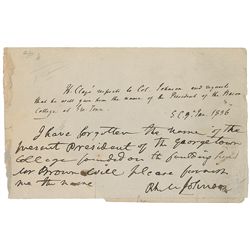 H. Clay's respects to Col. Johnson and regrets
that he will give him the name of the President of the Bacon
College at Geo. Town.
S.C. 9h. Jan. 1836
I have forgotten the name of the
present President of the Georgetown
College founded on the Pauling fund
Mr Brown will please furnish
me the name
Rh. M Johnson